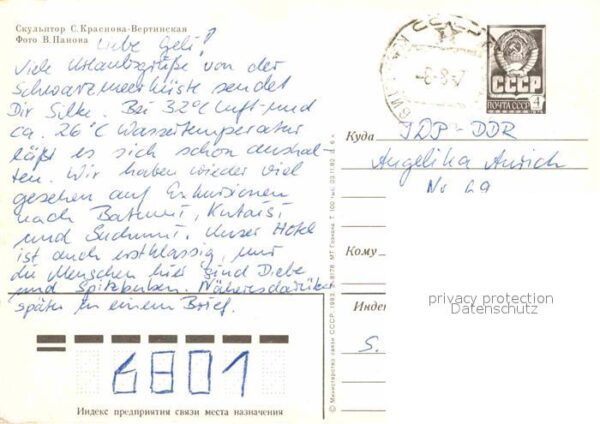 Скульптор С.Краснова-Вертинская
Фото В.Панова
Liebe Geli!
Viele Urlaubsgrüße von der
Schwarzmeerküste sendet
Dir Silke. Bei 32°C Luft- und
ca. 26°C Wassertemperatur
läßt es sich schon aushal-
ten. Wir haben wieder viel
gesehen auf Exkursionen
nach Batumi, Kutaisi
und Suchumi. Unser Hotel
ist auch erstklassig, nur
die Menschen hier sind Diebe
und Spitzbuben. Näheres darüber
später in einem Brief.
СССР
ПОЧТА СССР 4
Куда
DDR
Angelika
Nr 29
Кому
privacy protection
Datenschutz
Индекс
S.
6801
Индекс предприятия связи места назначения
© Министерство связи СССР. 1982